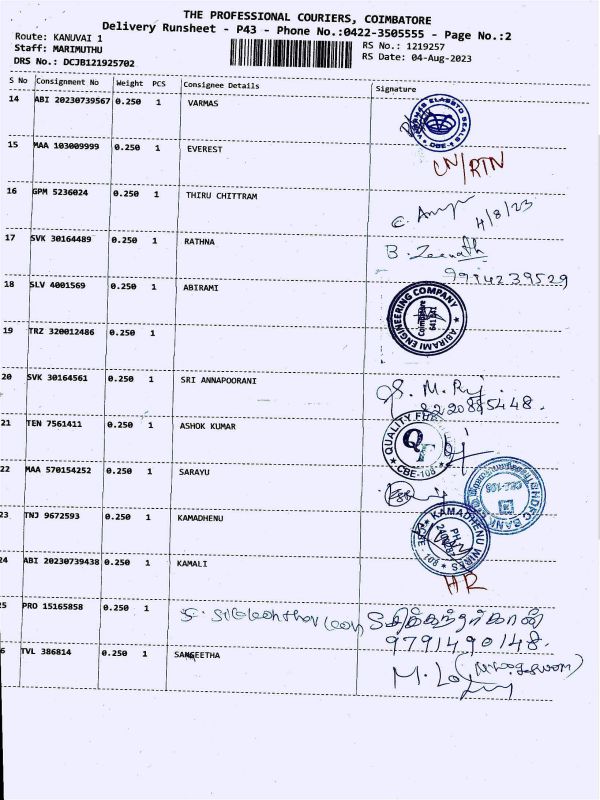 THE PROFESSIONAL COURIERS, COIMBATORE
Delivery Runsheet - P43 - Phone No.:0422-3505555 - Page No.:2
Route: KANUVAI 1
RS No.: 1219257
Staff: MARIMUTHU
RS Date: 04-Aug-2023
DRS No.: DCJB121925702
S No Consignment No Weight PCS Consignee Details Signature
14 ABI 20230739567 0.250 1 VARMAS
15 MAA 103009999 0.250 1 EVEREST
CN/RTN
16 GPM 5236024 0.250 1 THIRU CHITTRAM
4/8/23
17 SVK 30164489 0.250 1 RATHNA B. Zeenath
9994239529
18 SLV 4001569 0.250 1 ABIRAMI
ABIRAMI ENGINEERING COMPANY
Coimbatore
19 TRZ 320012486 0.250 1
20 SVK 30164561 0.250 1 SRI ANNAPOORANI
8220885448.
21 TEN 7561411 0.250 1 ASHOK KUMAR
QUALITY
QT
CBE-108
22 MAA 570154252 0.250 1 SARAYU
HDFC BANK
23 TNJ 9672593 0.250 1 KAMADHENU
KAMADHENU WIRES
PH
24 ABI 20230739438 0.250 1 KAMALI
HR
25 PRO 15165858 0.250 1
9791490148.
26 TVL 386814 0.250 1 SANGEETHA